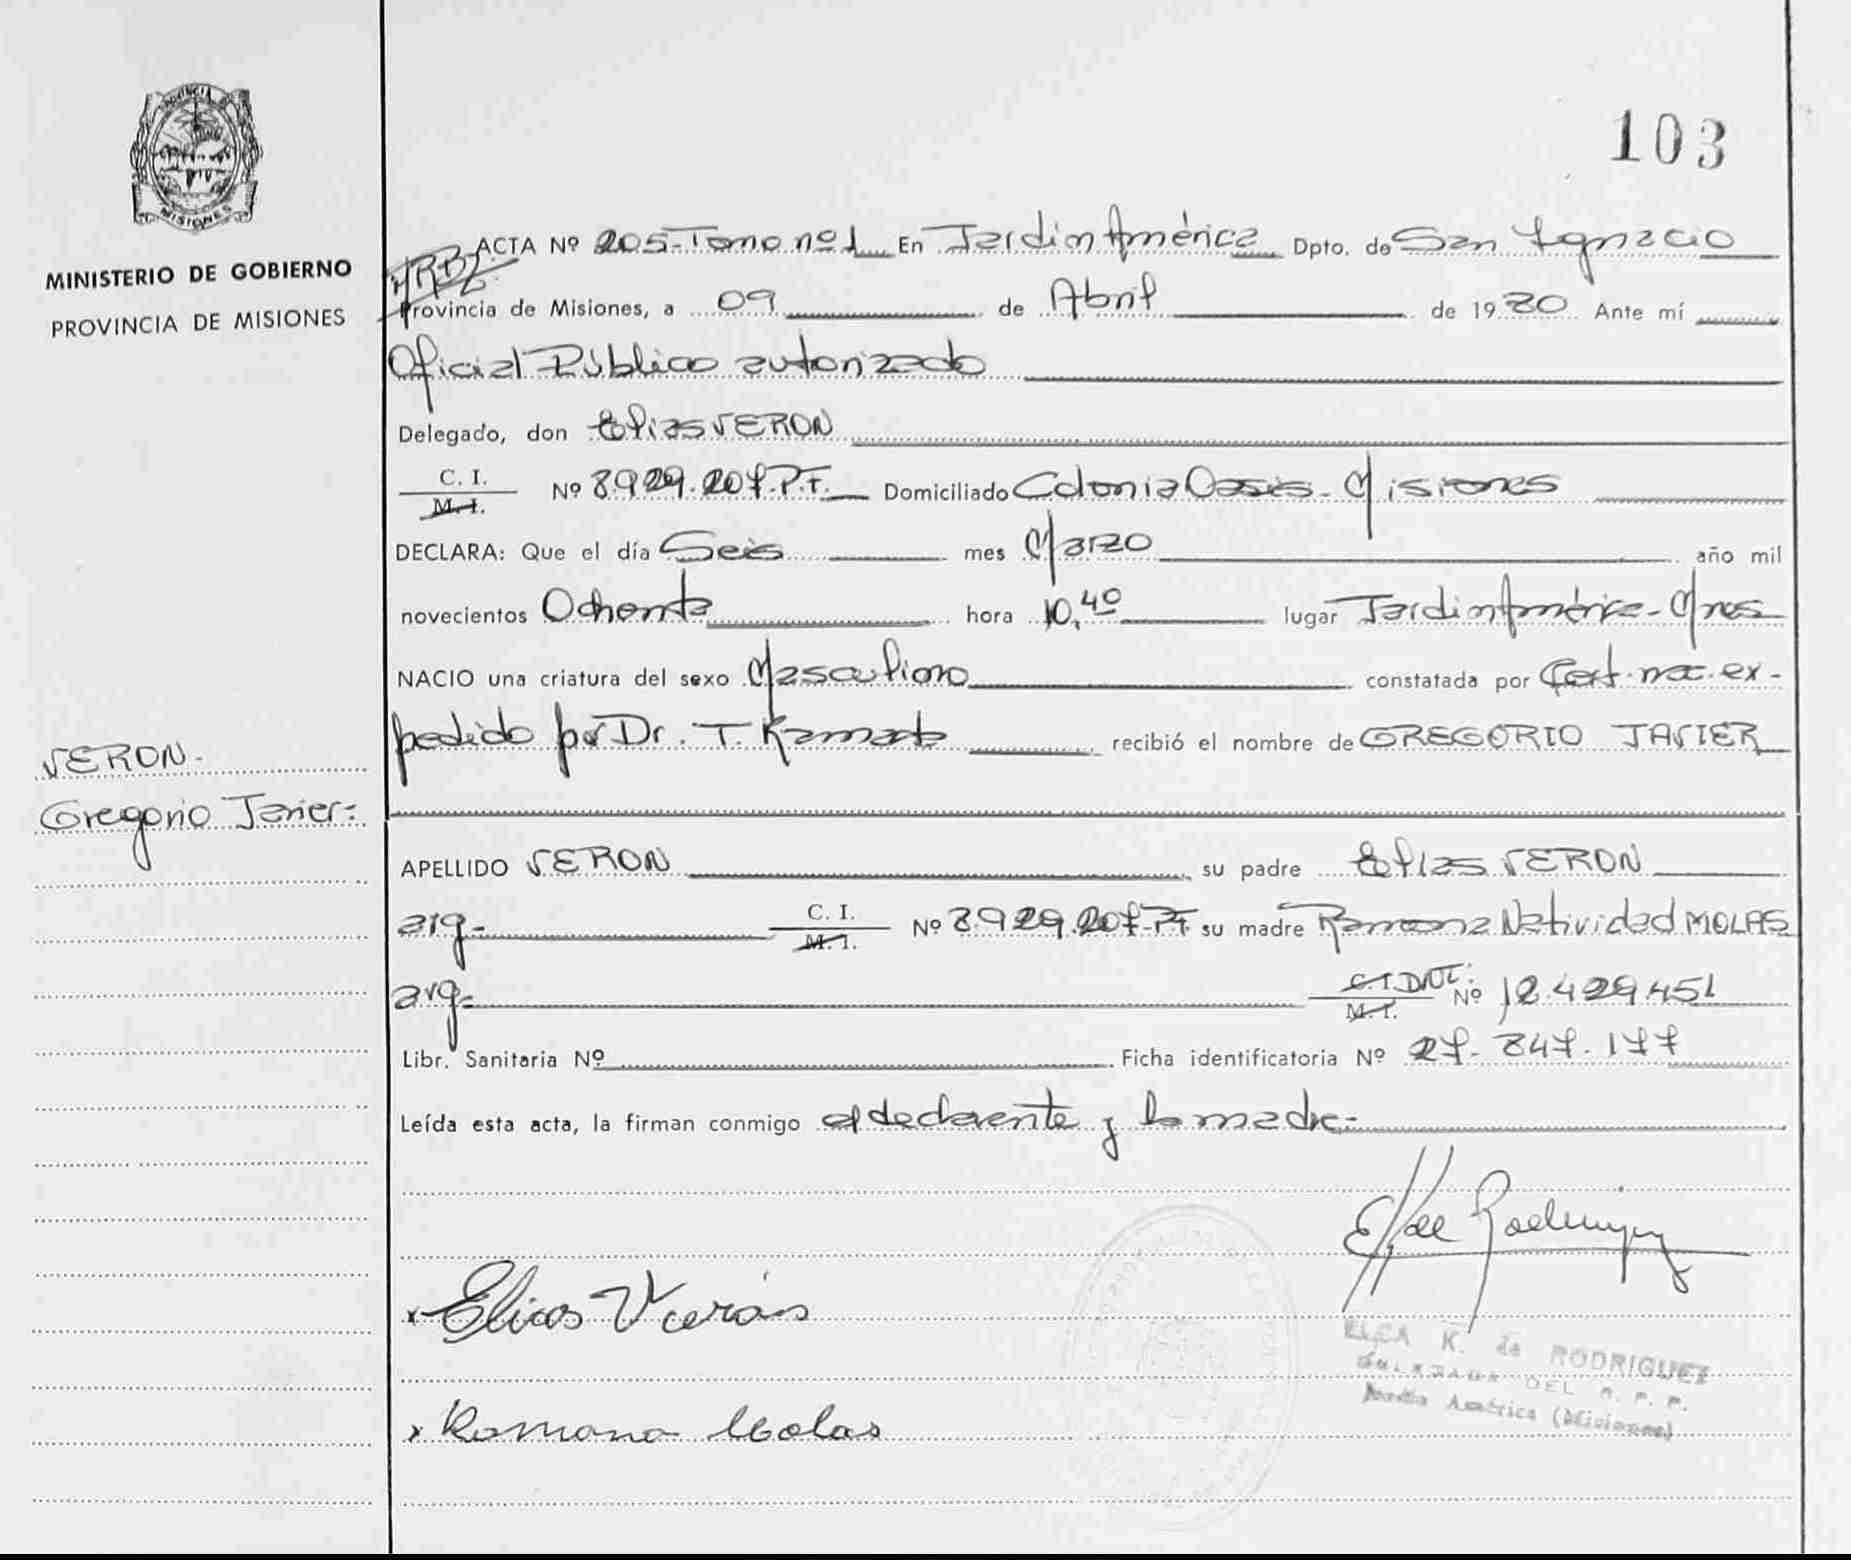 103
MINISTERIO DE GOBIERNO
PROVINCIA DE MISIONES
MISIONES
ACTA Nº 205-Tomo nº1 En Jardin América Dpto. de San Ignacio
Provincia de Misiones, a 09 de Abril de 1980 Ante mí
Oficial Público autorizado
Delegado, don Elias VERON
C. I.
M. I. Nº 8.929.207.P.F. Domiciliado Colonia Oasis - Misiones
DECLARA: Que el día Seis mes Marzo año mil
novecientos Ochenta hora 10,40 lugar Jardin América - Mnes
NACIO una criatura del sexo Masculino constatada por Cert. nac. ex-
pedido por Dr. T. Kamada recibió el nombre de GREGORIO JAVIER
VERON.-
Gregorio Javier:
APELLIDO VERON su padre Elias VERON
arg- C. I.
M. I. Nº 8.929.207-PF su madre Ramona Natividad MOLAS
arg- C.I. DNI.
M. I. Nº 12.429.451
Libr. Sanitaria Nº Ficha identificatoria Nº 27.847.177
Leída esta acta, la firman conmigo el declarente y la madre-
x Elias Verón
ELCA K. de RODRIGUEZ
DEL R. P. P.
Jardín América (Misiones)
x Romana Molas